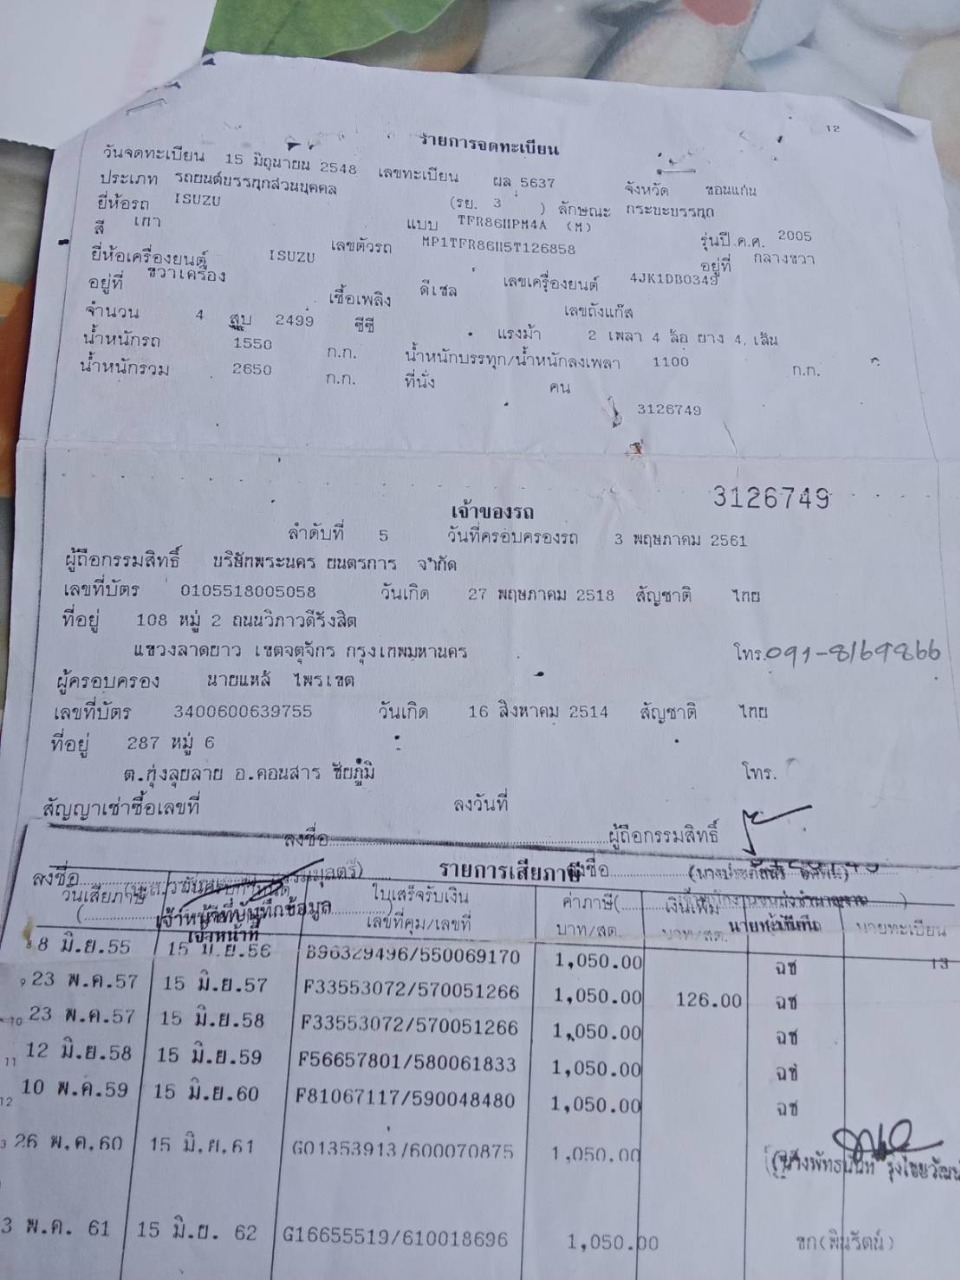 12
รายการจดทะเบียน
วันจดทะเบียน 15 มิถุนายน 2548 เลขทะเบียน ผล 5637 จังหวัด ขอนแก่น
ประเภท รถยนต์บรรทุกส่วนบุคคล (รย. 3 ) ลักษณะ กระบะบรรทุก
ยี่ห้อรถ ISUZU แบบ TFR86HPM4A (M) รุ่นปี ค.ศ. 2005
สี เทา เลขตัวรถ MP1TFR86H5T126858 อยู่ที่ กลางขวา
ยี่ห้อเครื่องยนต์ ISUZU เลขเครื่องยนต์ 4JK1DB0349
อยู่ที่ ขวาเครื่อง เชื้อเพลิง ดีเซล เลขถังแก๊ส
จำนวน 4 สูบ 2499 ซีซี แรงม้า 2 เพลา 4 ล้อ ยาง 4 เส้น
น้ำหนักรถ 1550 ก.ก. น้ำหนักบรรทุก/น้ำหนักลงเพลา 1100 ก.ก.
น้ำหนักรวม 2650 ก.ก. ที่นั่ง คน
3126749
3126749
เจ้าของรถ
ลำดับที่ 5 วันที่ครอบครองรถ 3 พฤษภาคม 2561
ผู้ถือกรรมสิทธิ์ บริษัทพระนคร ยนตรการ จำกัด
เลขที่บัตร 0105518005058 วันเกิด 27 พฤษภาคม 2518 สัญชาติ ไทย
ที่อยู่ 108 หมู่ 2 ถนนวิภาวดีรังสิต
แขวงลาดยาว เขตจตุจักร กรุงเทพมหานคร โทร. 091-8169866
ผู้ครอบครอง นายแหล้ ไพรเขต
เลขที่บัตร 3400600639755 วันเกิด 16 สิงหาคม 2514 สัญชาติ ไทย
ที่อยู่ 287 หมู่ 6
ต.ทุ่งลุยลาย อ.คอนสาร ชัยภูมิ โทร.
สัญญาเช่าซื้อเลขที่ ลงวันที่
ลงชื่อ ผู้ถือกรรมสิทธิ์
ลงชื่อ รายการเสียภาษี
วันเสียภาษี ใบเสร็จรับเงิน ค่าภาษี เงินเพิ่ม
เจ้าหน้าที่บันทึกข้อมูล เลขที่คุม/เลขที่ บาท/สต. บาท/สต. นายทะเบียน
8 มิ.ย.55 15 มิ.ย.56 B96329496/550069170 1,050.00 ฉช 13
9 23 พ.ค.57 15 มิ.ย.57 F33553072/570051266 1,050.00 126.00 ฉช
10 23 พ.ค.57 15 มิ.ย.58 F33553072/570051266 1,050.00 ฉช
11 12 มิ.ย.58 15 มิ.ย.59 F56657801/580061833 1,050.00 ฉช
12 10 พ.ค.59 15 มิ.ย.60 F81067117/590048480 1,050.00 ฉช
3 26 พ.ค.60 15 มิ.ย.61 G01353913/600070875 1,050.00
3 พ.ค. 61 15 มิ.ย. 62 G16655519/610018696 1,050.00 ขก(พินรัตน์)